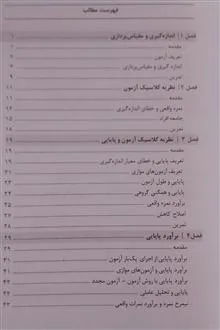 فهرست مطالب
فصل ۱ | اندازه‌گیری و مقیاس‌پردازی
مقدمه
تعریف آزمون
اندازه گیری و مقیاس‌پردازی
تمرین ۹
فصل ۲ | نظریه کلاسیک آزمون ۱۱
مقدمه ۱۱
نمره واقعی و خطای اندازه‌گیری
جامعه افراد
تمرین ۱۸
فصل ۳ | نظریه کلاسیک آزمون و پایایی ۱۹
مقدمه ۱۹
تعریف پایایی و خطای معیار اندازه‌گیری
تعریف آزمون‌های موازی
پایایی و طول آزمون ۲۱
پایایی و همگنی گروهی ۲۳
برآورد نمره واقعی
اصلاح کاهش ۲۵
تمرین ۲۸
فصل ۴ | برآورد پایایی ۲۹
مقدمه ۲۹
برآورد پایایی از اجرای یک‌بار آزمون ۳۱
برآورد پایایی و آزمون‌های موازی ۳۲
برآورد پایایی با روش آزمون – آزمون مجدد ۳۲
پایایی و تحلیل عاملی ۴۲
نیمرخ نمره و برآورد نمرات واقعی ۴۳